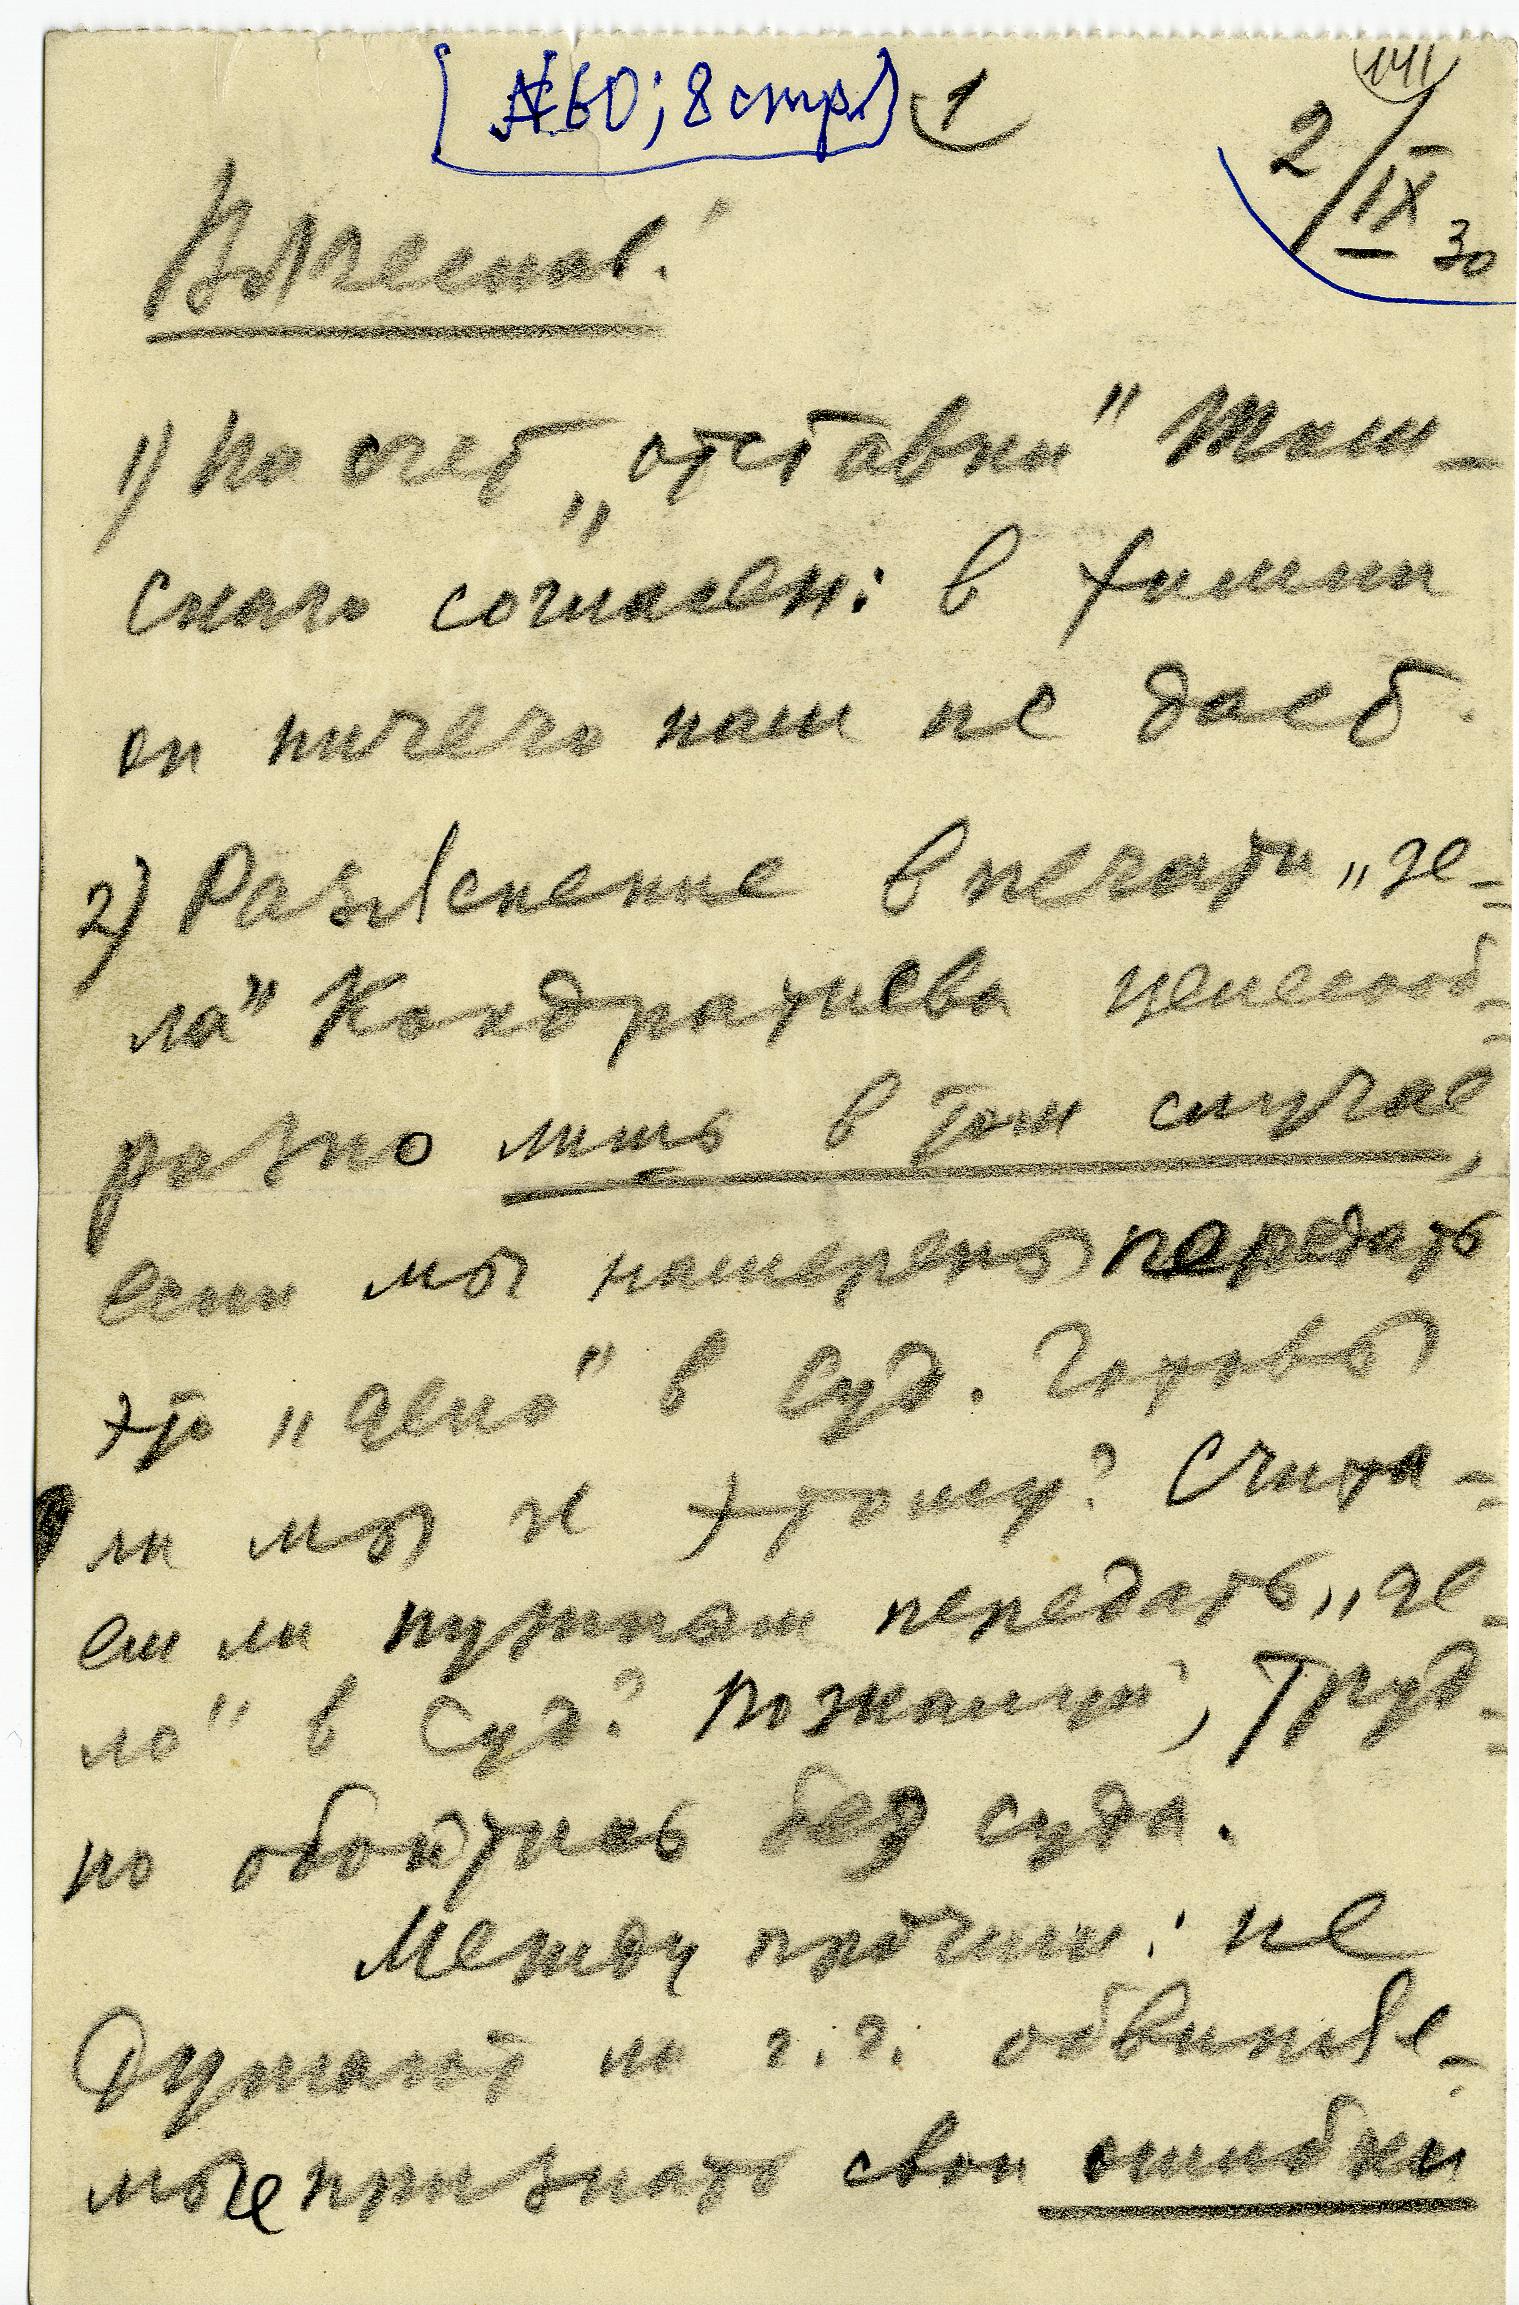 [№ 60; 8 стр.] 1
141
2/IX 30
Вячеслав!
1) На счет „отставки" Том-
ского согласен: в химии
он ничего нам не даёт.
2) Раз'яснение в печати „де-
ла" Кондратьева целесооб-
разно лишь в том случае,
если мы намерены передать
это „дело" в суд. Готовы
ли мы к этому? Счита-
ем ли нужным передать „де-
ло" в суд? Пожалуй, труд-
но обойтись без суда.
Между прочим: не
думают ли г.г. обвиняе-
мые признать свои ошибки